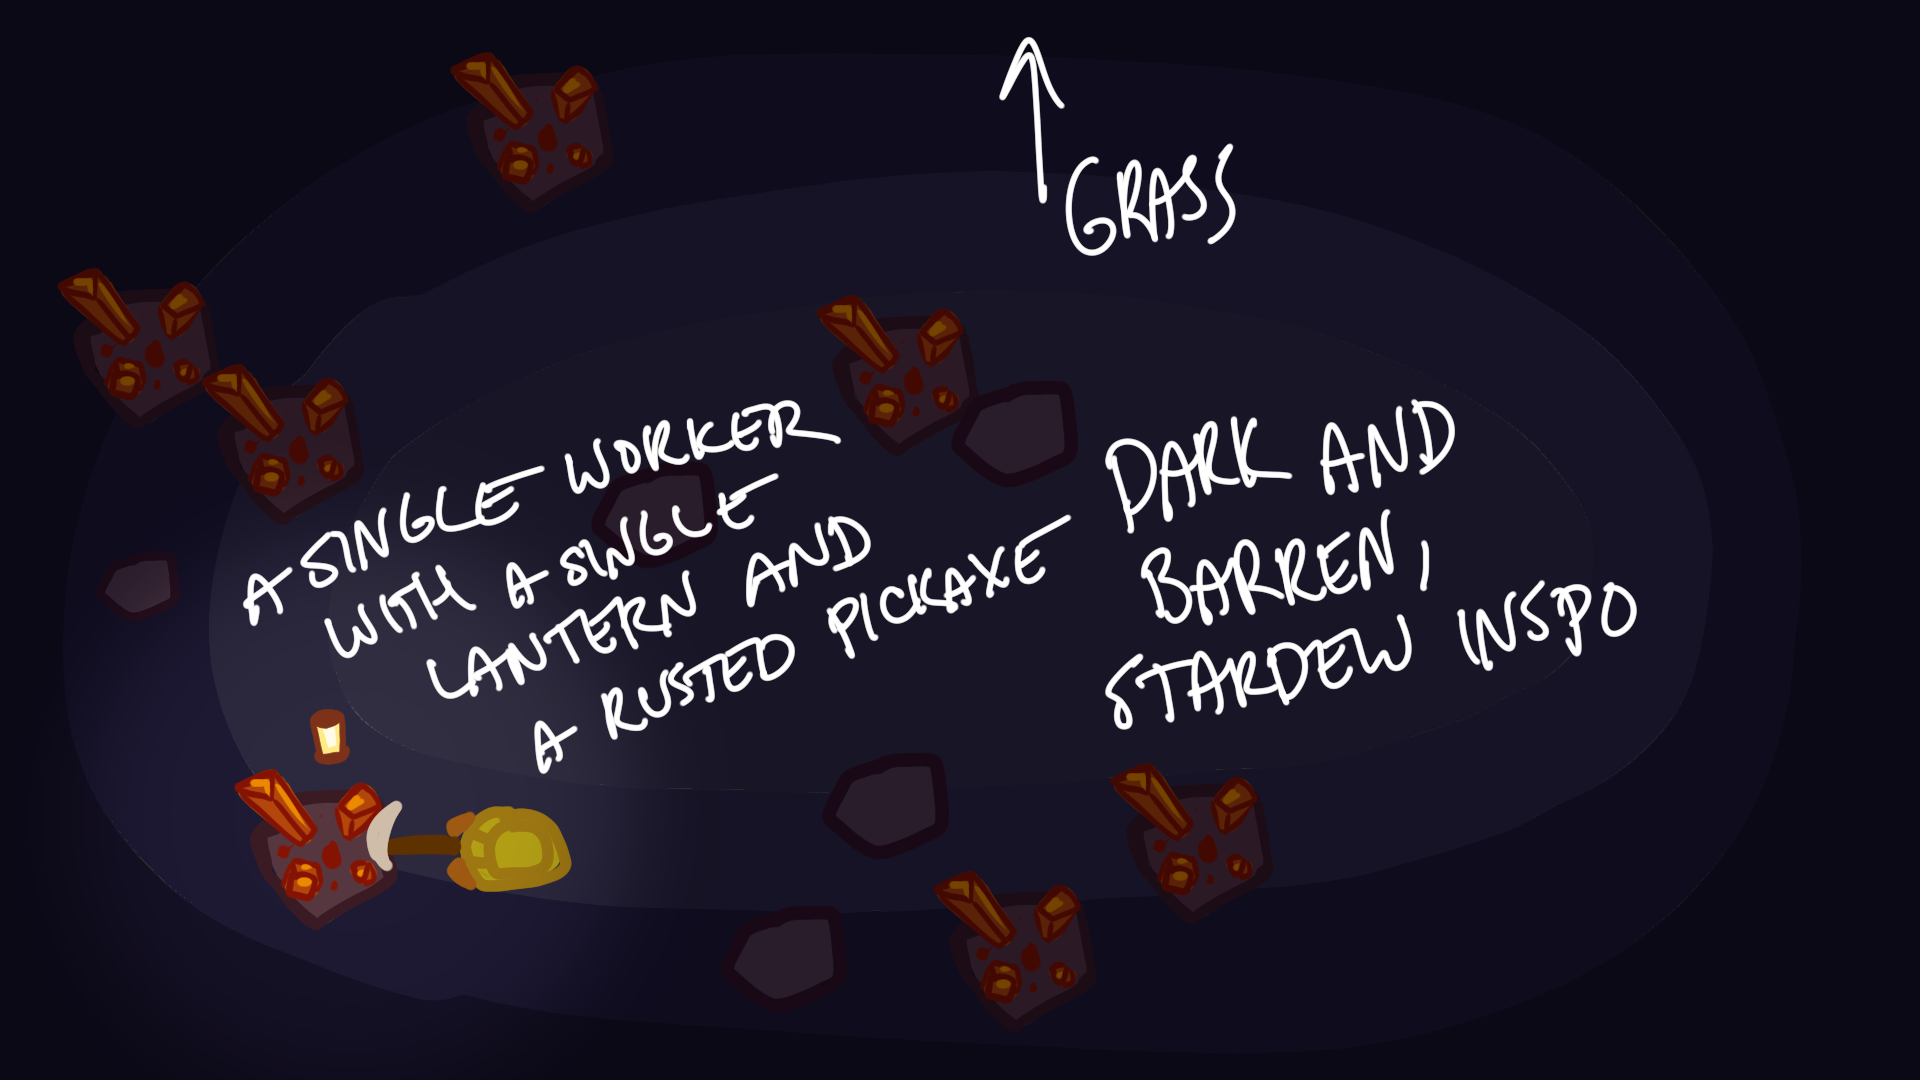 GRASS
A SINGLE WORKER
WITH A SINGLE
LANTERN AND
A RUSTED PICKAXE
DARK AND
BARREN,
STARDEW INSPO